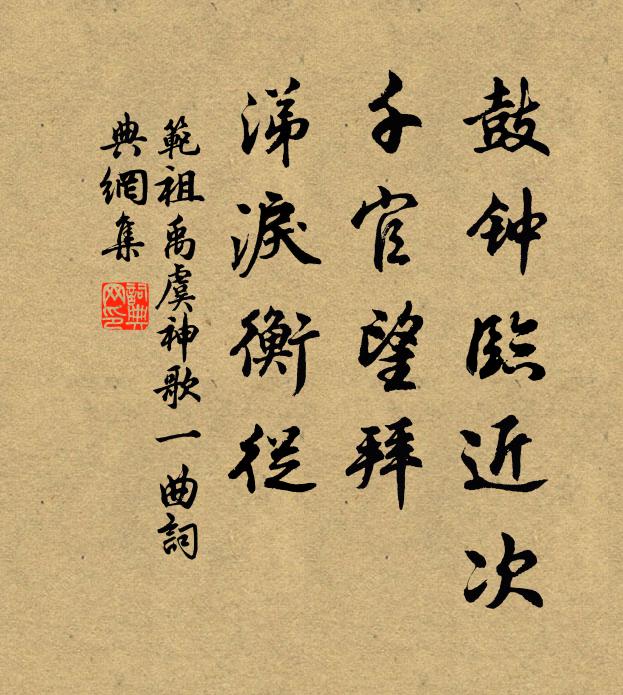 鼓钟臨近次
千官望拜
涕淚衡從
範祖禹虞神歌一曲詞
典網集
詞典网印